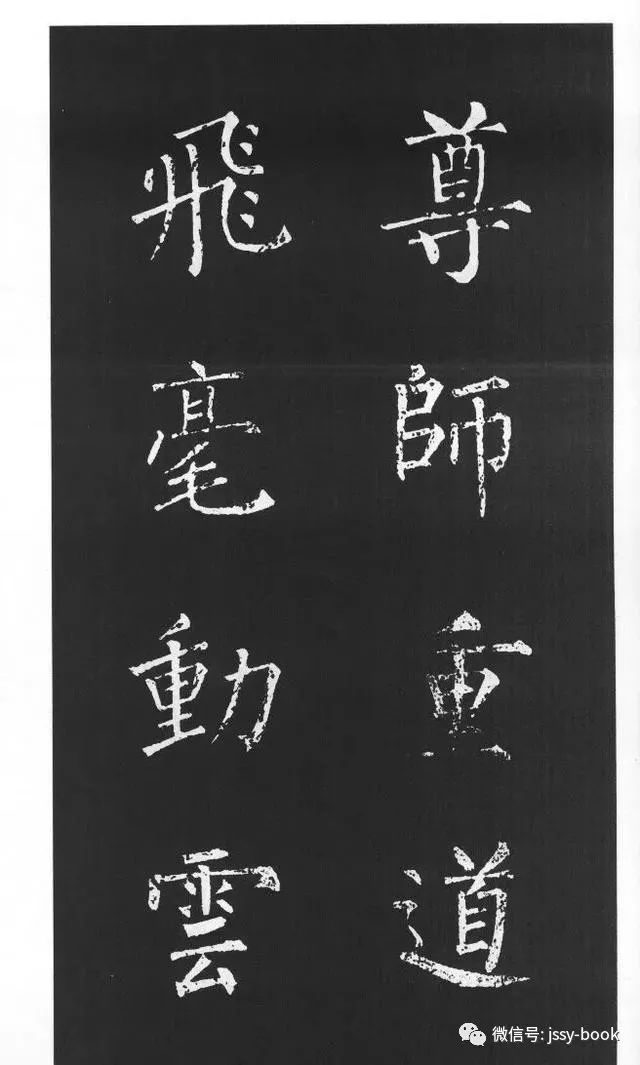 尊師重道
飛毫動雲
微信号: jssy-book